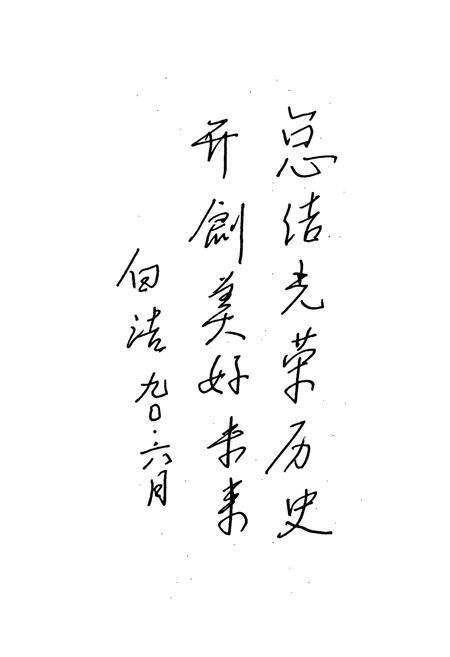 总结光荣历史
开創美好未来
白洁 九〇·六月